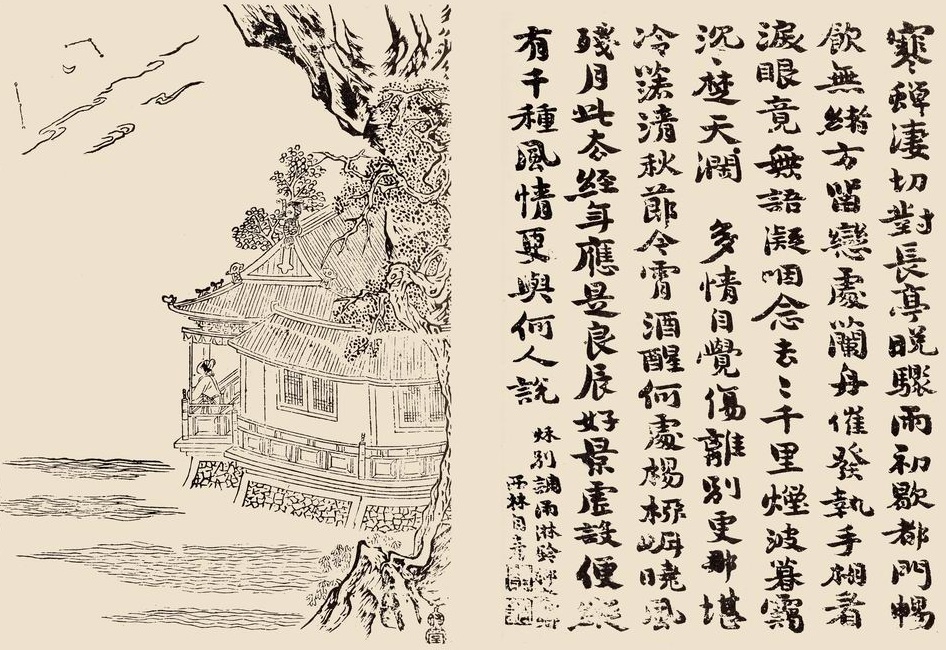 寒蟬凄切對長亭晚驟雨初歇都門暢
飲無緒方留戀處蘭舟催發執手相看
淚眼竟無語凝咽念去〻千里煙波暮靄
沉〻楚天濶　多情自覺傷離別更那堪
冷落清秋節今宵酒醒何處楊柳岸曉風
殘月此去經年應是良辰好景虛設便縱
有千種風情更與何人說
秋別調雨淋鈴